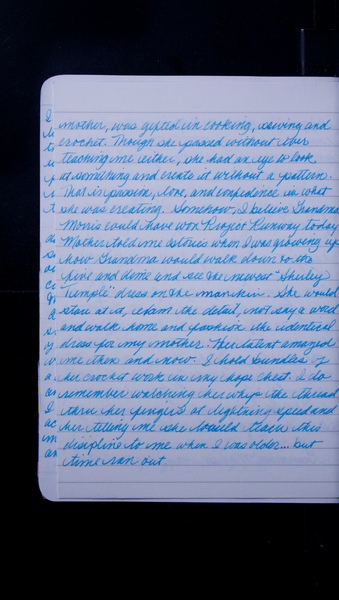 mother, was gifted in cooking, sewing and
crochet. Though she passed without ever
teaching me either, she had an eye to look
at something and create it without a pattern.
That is passion, love, and confidence in what
she was creating. Somehow, I believe Grandma
Morris could have won Project Runway today
Mother told me stories when I was growing up
how Grandma would walk down to the
five and dime and see the newest "Shirley
Temple" dress on the manikin. She would
stare at it, retain the detail, not say a word
and walk home and fashion the identical
dress for my mother. Her talent amazed
me then and now. I hold bundles of
her crochet work in my hope chest. I do
remember watching her whip the thread
thru her fingers at lightning speed and
her telling me she would teach this
discipline to me when I was older... but
time ran out.